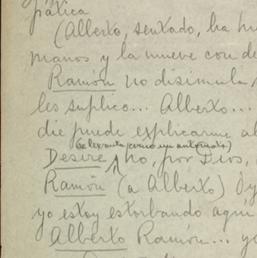 pática
(Alberto, sentado, ha
manos y la mueve con de
Ramón no disimula,
les suplico... Alberto...
die puede explicarme al
(se levanta como un autómata)
Desire ¡no, por Dios,
Ramón (a Alberto) Oy
yo estoy estorbando aquí
Alberto Ramón... yo